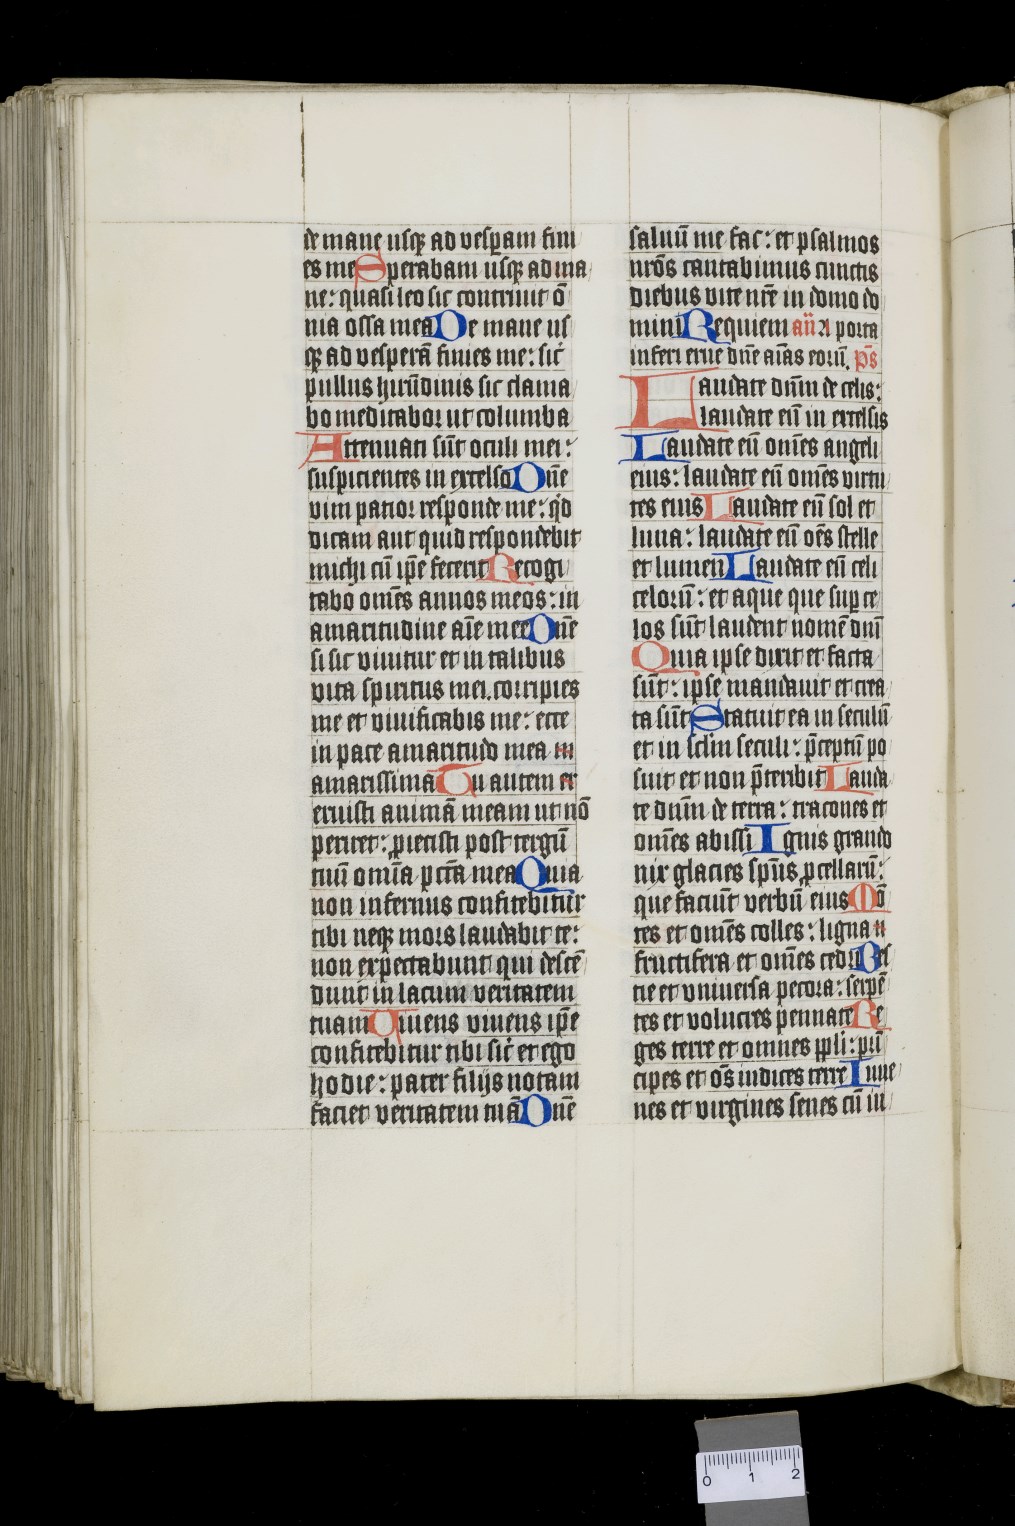 de mane usqꝫ ad vespam fini
es me Sperabam usqꝫ ad ma
ne: quasi leo sic contriuit o᷒̄
nia ossa mea De mane us
qꝫ ad vesperā finies me: sic̄
pullus hirūdinis sic clama
bo meditabor ut columba
Attenuati sūt oculi mei:
suspicientes in excelso Dn̄e
vim patior responde me: qd̄
dicam aut quid respondebit
michi cū ip̄e fecerit Recogi
tabo om̄es annos meos: in
amaritudine aīe mee Dn̄e
si sic vivitur et in talibus
vita spiritus mei. corripies
me et vivificabis me: ecce
in pace amaritudo mea
amarissima Tu autem er
eruisti animā meam ut nō
periret: ꝓiecisti post tergū
tuū om̄ia pctā mea Quia
non infernus confitebitur
tibi neqꝫ mors laudabit te:
non expectabunt qui descē
dunt in lacum veritatem
tuam Viuens viuens ip̄e
confitebitur tibi sic̄ et ego
hodie: pater filijs notam
faciet veritatem tuā Dn̄e
saluū me fac: et psalmos
nr̄os cantabimus cunctis
diebus vite nr̄e in domo do
mini Requiem an̄ A porta
inferi erue dn̄e aīas eorū. p̄s
Laudate dn̄m de celis:
laudate eū in excelsis
Laudate eū om̄es angeli
eius: laudate eū om̄es virtu
tes eius Laudate eū sol et
luna: laudate eū oēs stelle
et lumen Laudate eū celi
celorū: et aque que sup ce
los sūt laudent nomē dn̄i
Quia ipse dixit et facta
sūt: ipse mandauit et crea
ta sūt Statuit ea in seculū
et in sclm̄ seculi: p̄ceptū po
suit et non p̄teribit Lauda
te dn̄m de terra: tracones et
om̄es abissi Ignis grando
nix glacies sp̄us ꝓcellarū:
que faciūt verbū eius Mō
tes et om̄es colles: ligna
fructifera et om̄es cedri Bes
tie et vniuersa pecora: serpē
tes et volucres pennate Re
ges terre et omnes ppli: prī
cipes et oēs iudices terre Iuue
nes et virgines senes cū iu